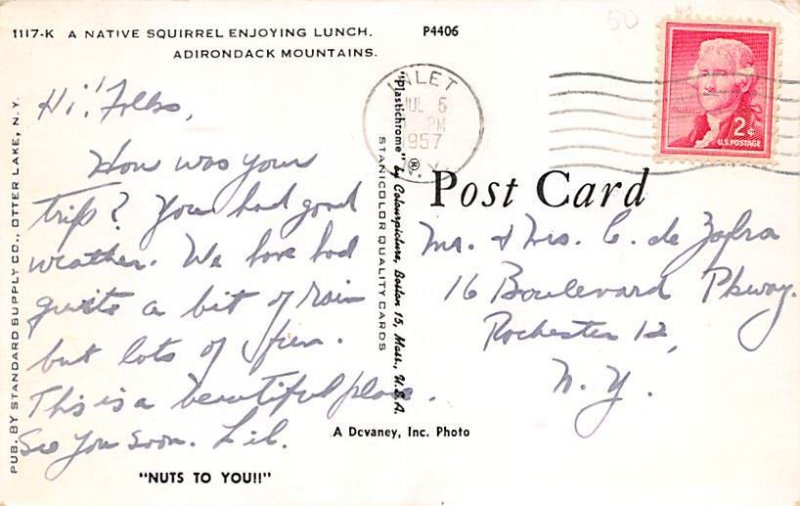 1117-K A NATIVE SQUIRREL ENJOYING LUNCH.
ADIRONDACK MOUNTAINS.
P4406
Hi! Folks,
How was your
trip? You had good
weather. We have had
quite a bit of rain
but lots of fun.
This is a beautiful place.
See you soon. Lil.
"NUTS TO YOU!!"
PUB. BY STANDARD SUPPLY CO., OTTER LAKE, N. Y.
INLET
JUL 5
PM
1957
N. Y.
"Plastichrome" ® by Colourpicture, Boston 15, Mass., U.S.A.
STANICOLOR QUALITY CARDS
A Devaney, Inc. Photo
50
2¢
U.S. POSTAGE
Post Card
Mr. & Mrs. C. de Zafra
16 Boulevard Pkway.
Rochester 12,
N. Y.